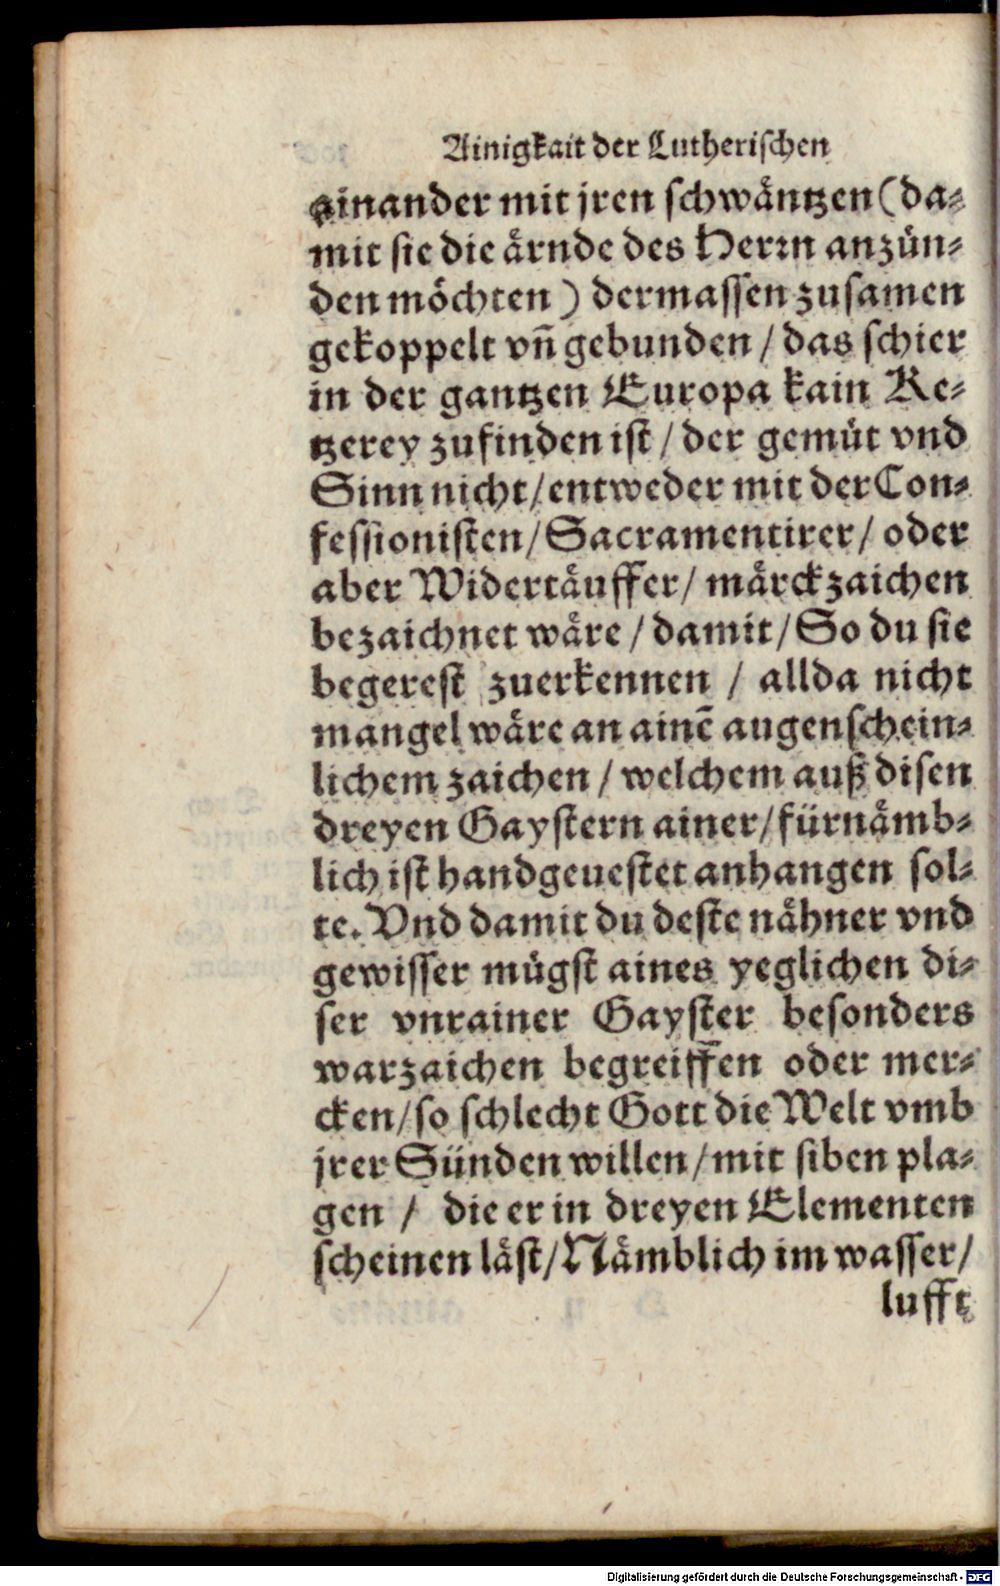 Ainigkait der Lutherischen
ainander mit jren schwäntzen (da⸗
mit sie die ärnde des Herꝛn anzün⸗
den möchten) dermassen zusamen
gekoppelt vñ gebunden / das schier
in der gantzen Europa kain Ke⸗
tzerey zufinden ist / der gemüt vnd
Sinn nicht / entweder mit der Con⸗
fessionisten / Sacramentirer / oder
aber Widertäuffer / märckzaichen
bezaichnet wäre / damit / So du sie
begerest zuerkennen / allda nicht
mangel wäre an ainẽ augenschein⸗
lichem zaichen / welchem auß disen
dreyen Gaystern ainer / fürnämb⸗
lich ist handgeuestet anhangen sol⸗
te. Vnd damit du deste nähner vnd
gewisser mügst aines yeglichen di⸗
ser vnrainer Gayster besonders
warzaichen begreiffen oder mer⸗
cken / so schlecht Gott die Welt vmb
jrer Sünden willen / mit siben pla⸗
gen / die er in dreyen Elementen
scheinen läst / Nämblich im wasser /
lufft
Digitalisierung gefördert durch die Deutsche Forschungsgemeinschaft - DFG